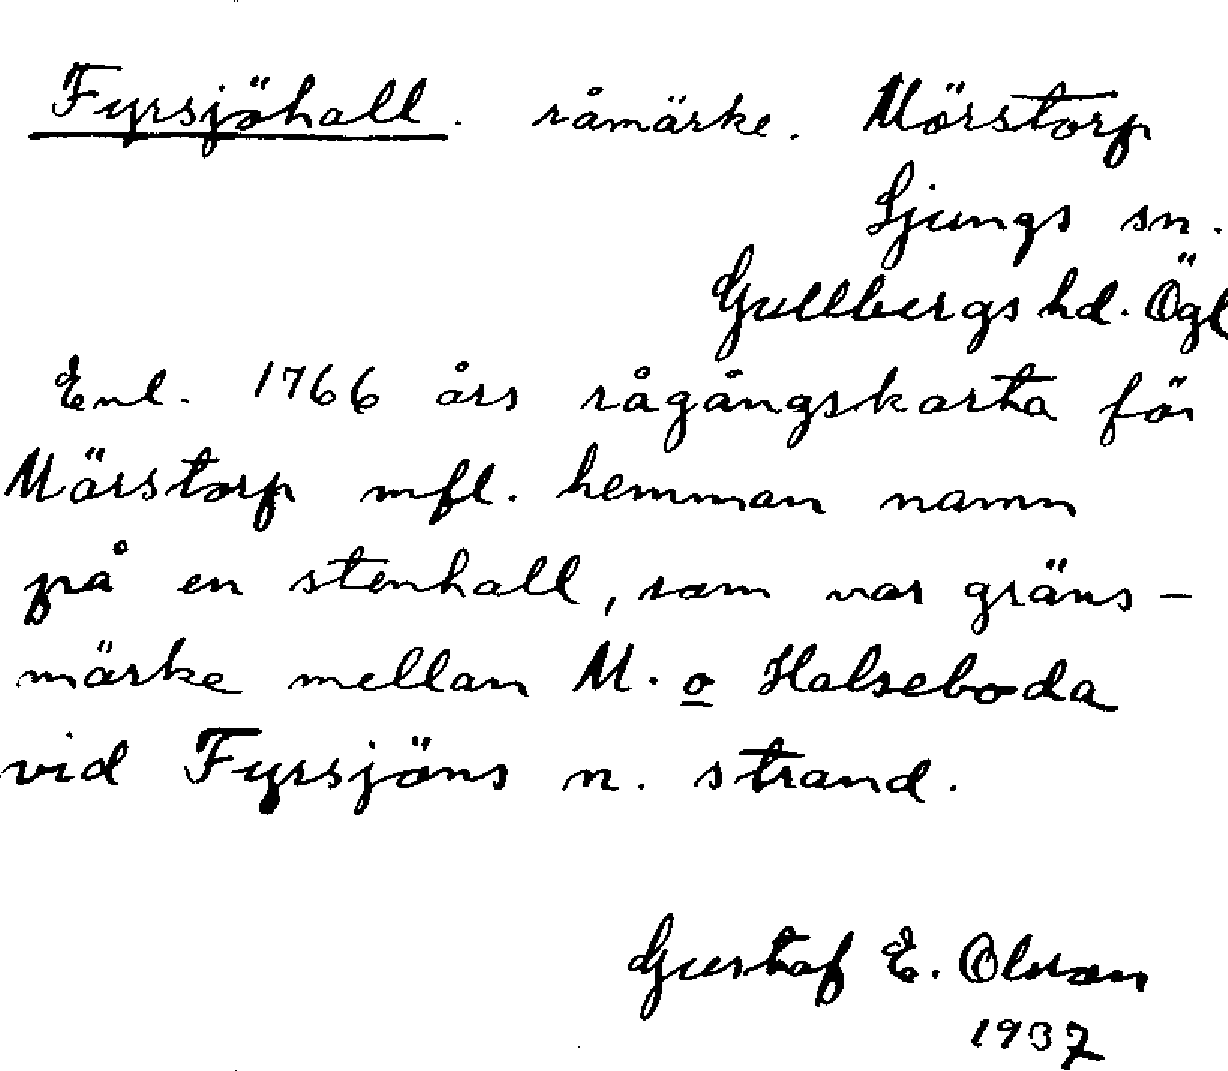 Fyrsjöhall. råmärke. Mörstorp
Ljungs sn.
Gullbergs hd. Ögl
Enl. 1766 års rågångskarta för
Mörstorp mfl. hemman namn
på en stenhall, som var gräns-
märke mellan M. o Halseboda
vid Fyrsjöns n. strand.
Gustaf E. Olsson
1937